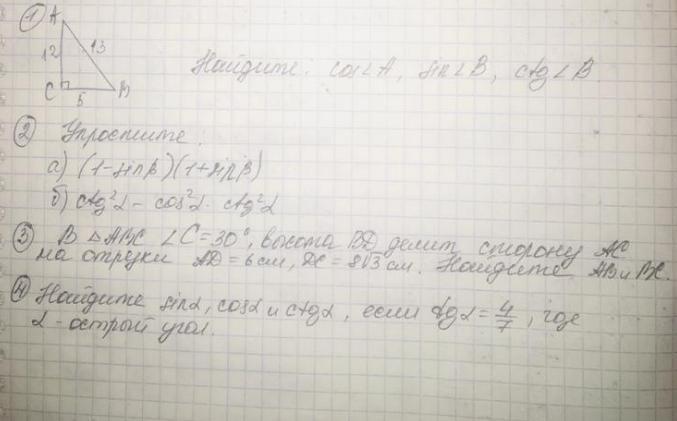 1 A
12 13
C 5 B
Найдите: cos∠A, sin∠B, ctg∠B.
2 Упростите:
а) (1-sinβ)(1+sinβ)
б) ctg²α - cos²α · ctg²α
3 В △ABC ∠C=30°, высота BD делит сторону AC
на отрезки AD=6см, DC=8√3 см. Найдите AB и BC.
4 Найдите sinα, cosα и ctgα, если tgα=4/7, где
α - острый угол.